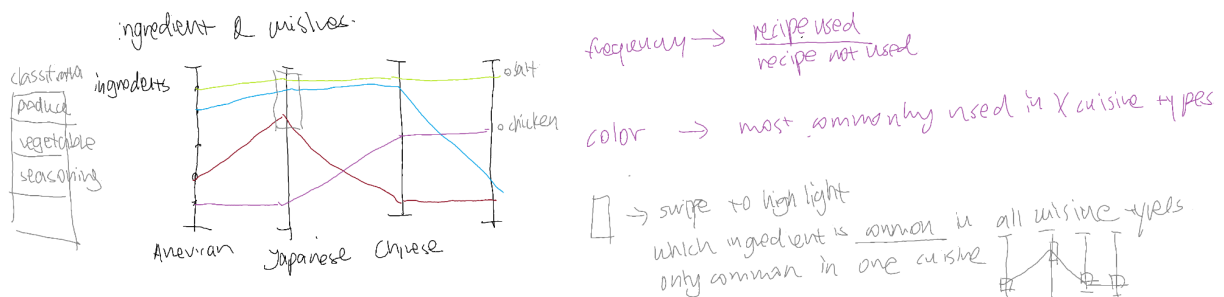 ingredient & cuisines.
classification
ingredients
produce
vegetable
seasoning
salt
chicken
American
Japanese
Chinese
frequency → recipe used
recipe not used
color → most commonly used in X cuisine types
→ swipe to highlight
which ingredient is common in all cuisine types
only common in one cuisine